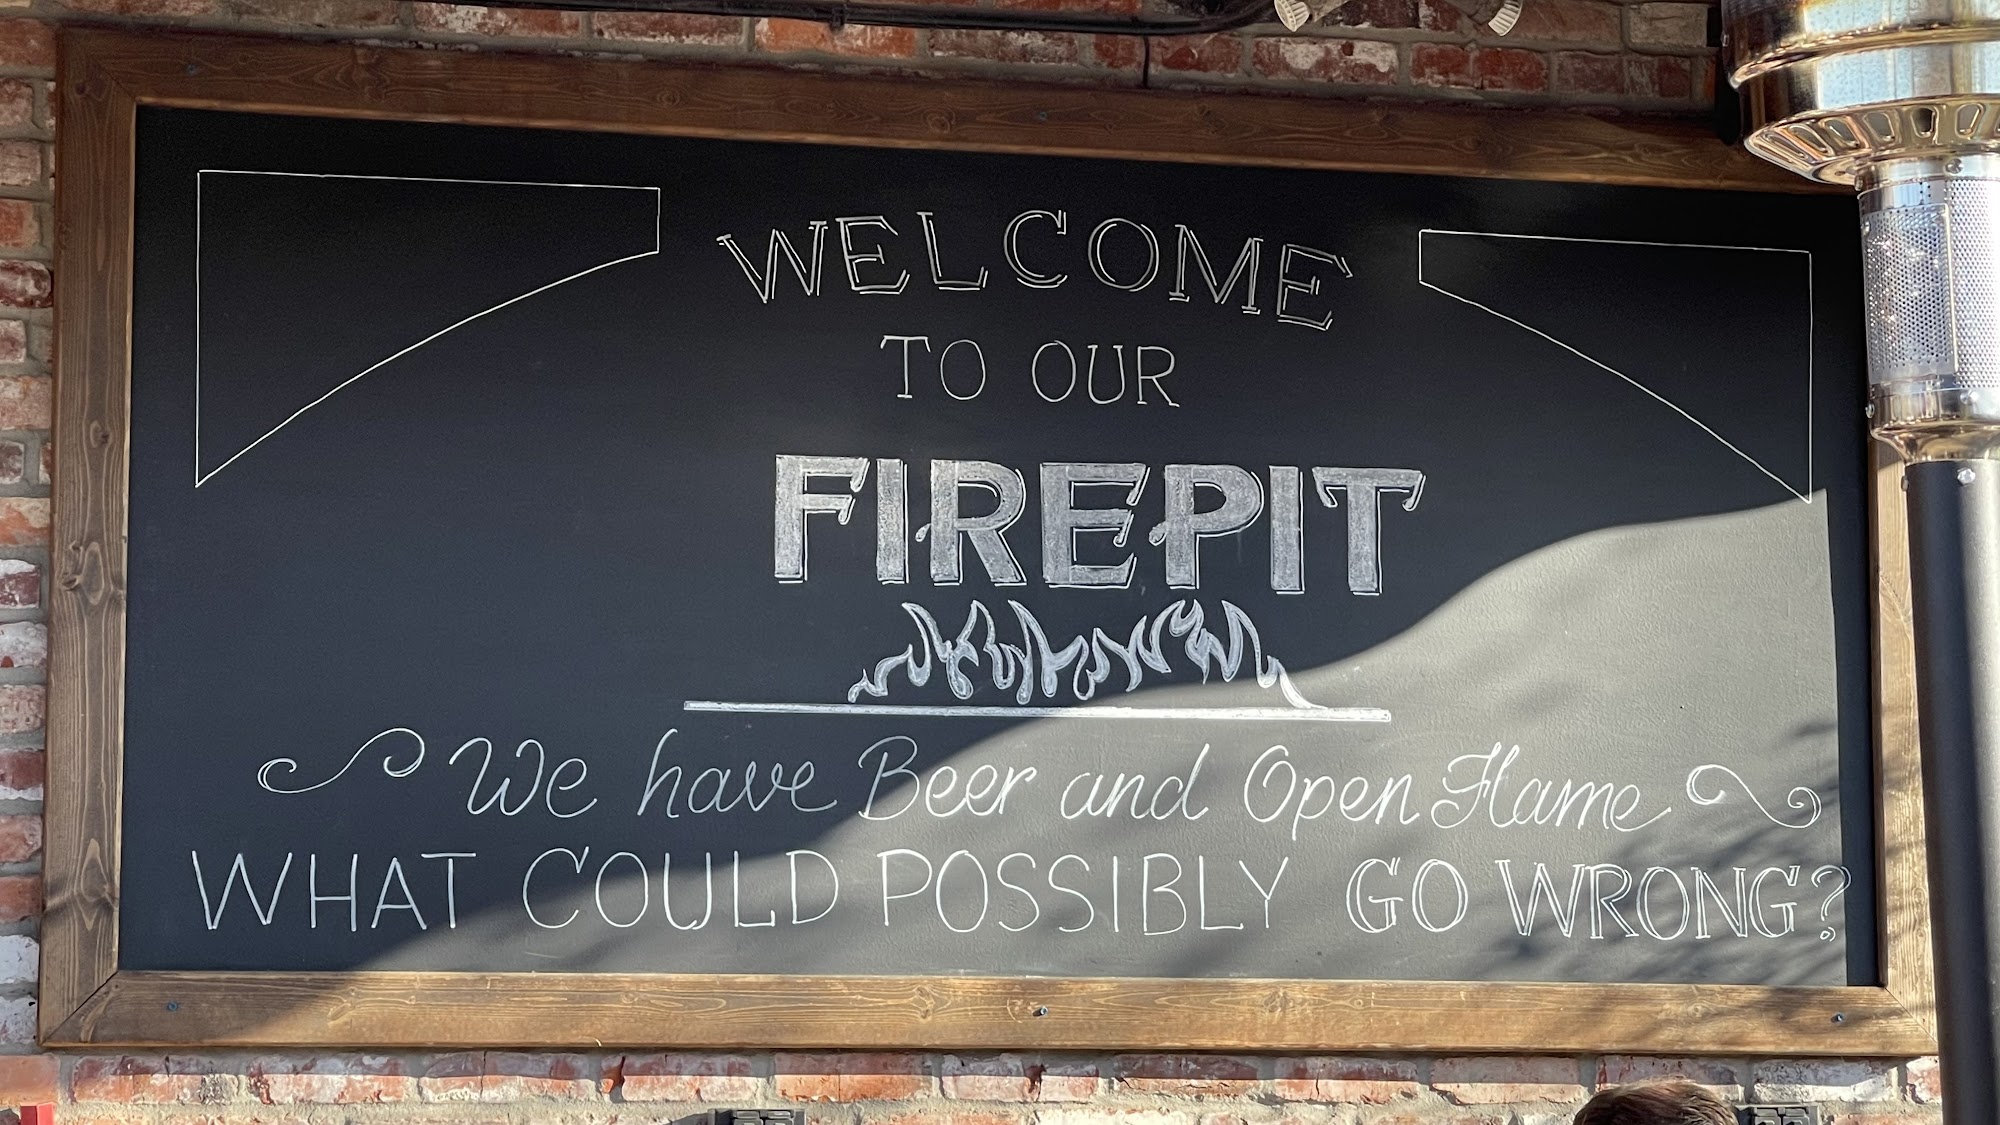 WELCOME
TO OUR
FIREPIT
We have Beer and Open Flame
WHAT COULD POSSIBLY GO WRONG?